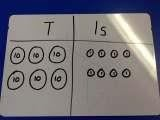 T 1s
10 10 10 1 1 1 1
10 10 10 1 1 1 1